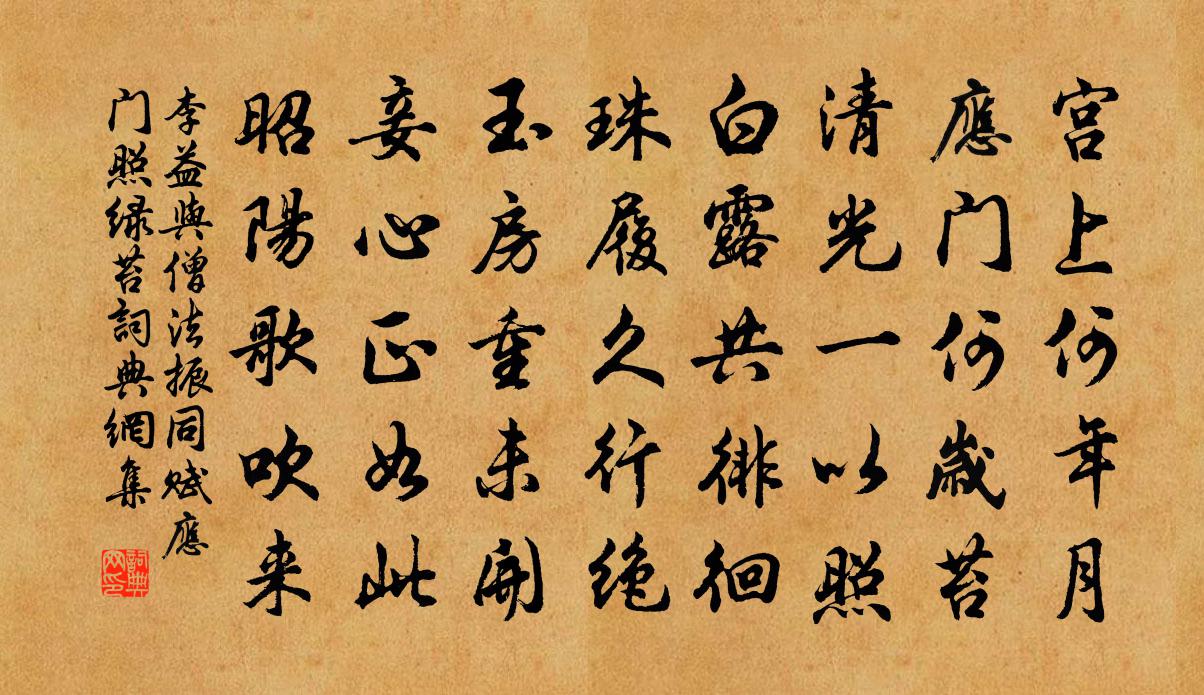 宫上何年月
應门何歲苔
清光一以照
白露共徘徊
珠履久行绝
玉房重未開
妾心正如此
昭陽歌吹来
李益與僧法振同赋應
门照绿苔詞典網集
詞典网印